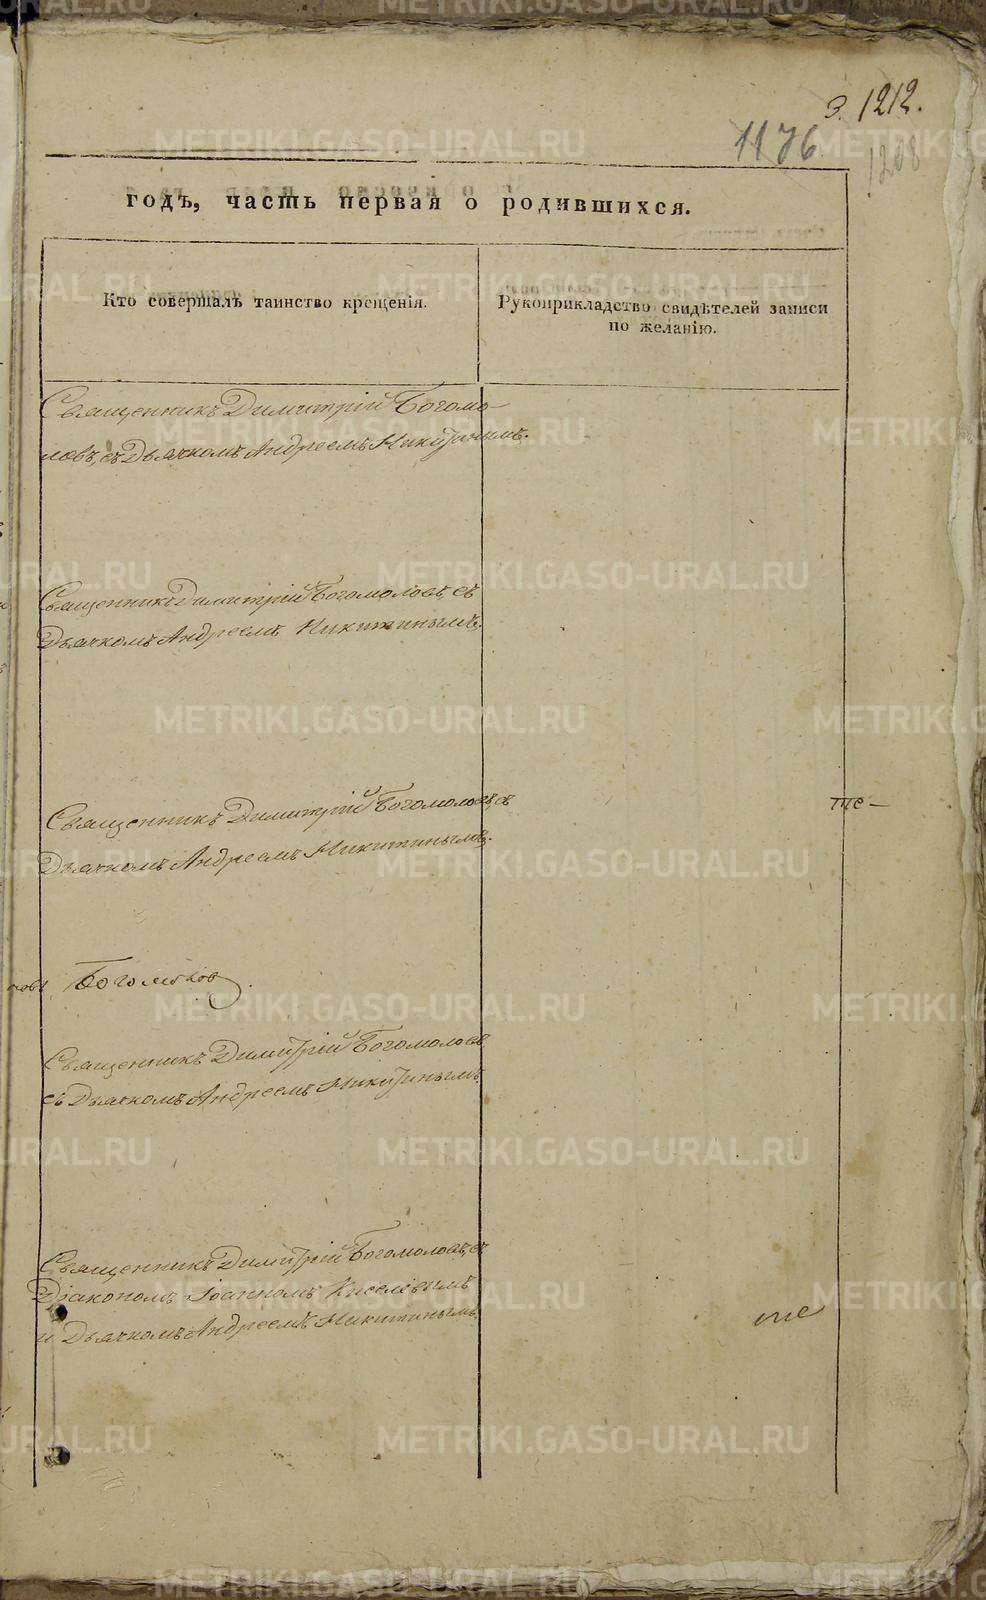 3. 1212.
1176
1208
годъ, часть первая о родившихся.
Кто совершалъ таинство крещенія.
Рукоприкладство свидѣтелей записи
по желанію.
Священникъ Димитрій Богомо-
ловъ, съ Дьячкомъ Андреемъ Никитинымъ.
Священникъ Димитрій Богомоловъ, съ
Дьячкомъ Андреемъ Никитинымъ.
Священникъ Димитрій Богомоловъ, съ
Дьячкомъ Андреемъ Никитинымъ.
те-
Богомолов
Священникъ Димитрій Богомоловъ
съ Дьячкомъ Андреемъ Никитинымъ.
Священникъ Димитрій Богомоловъ, съ
Діакономъ Іоанномъ Киселевымъ
и Дьячкомъ Андреемъ Никитинымъ.
METRIKI.GASO-URAL.RU